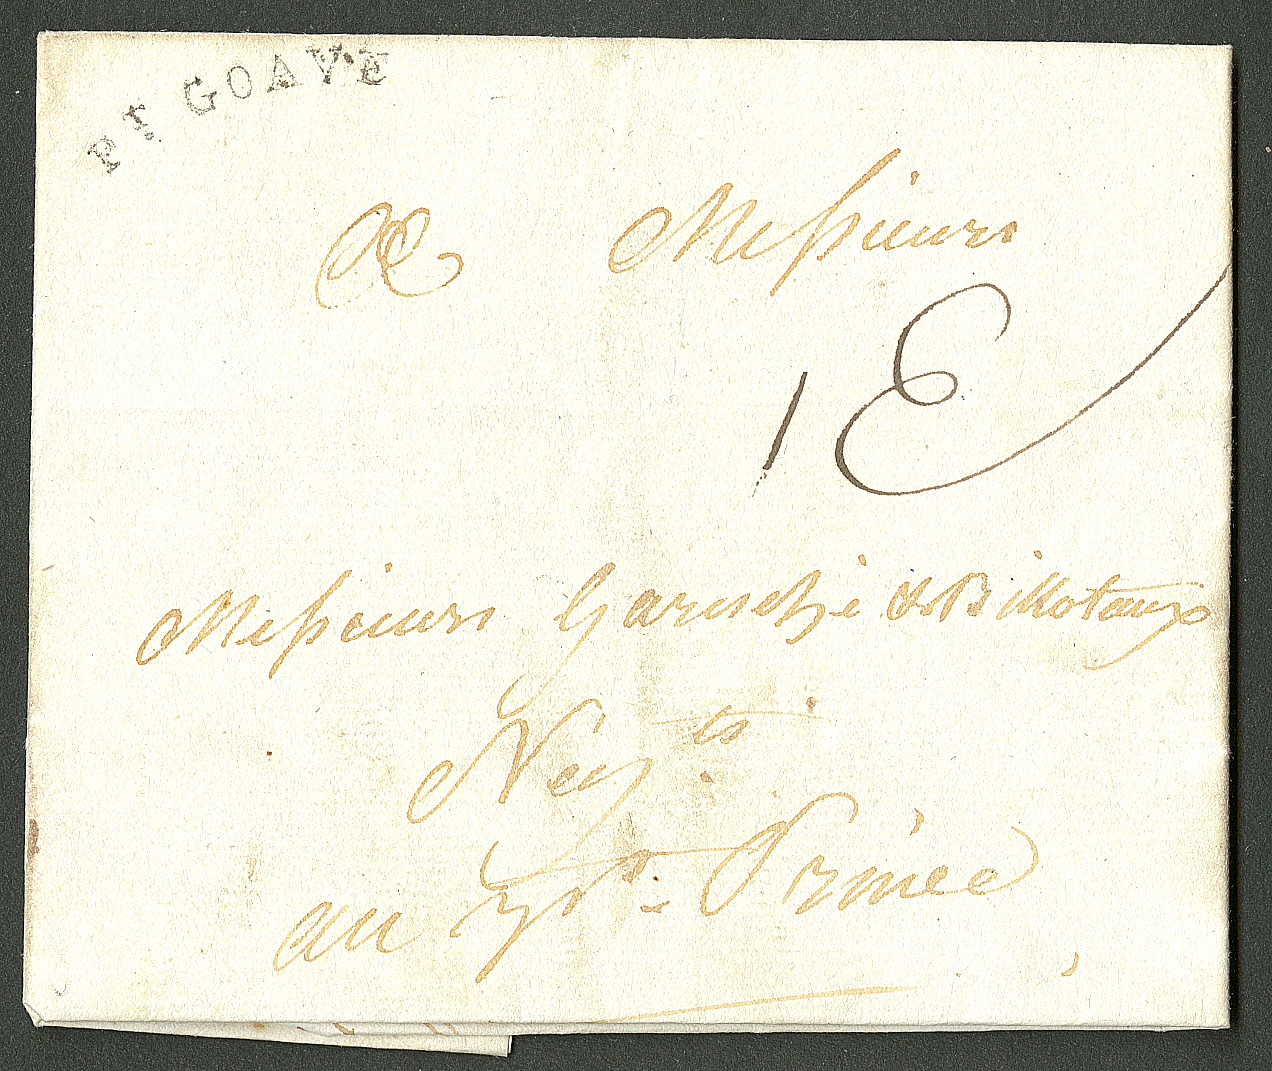 Pt GOAVE
A Messieurs
1 E
Messieurs Garesché & Billoteaux
Negts
au Pt. Prince